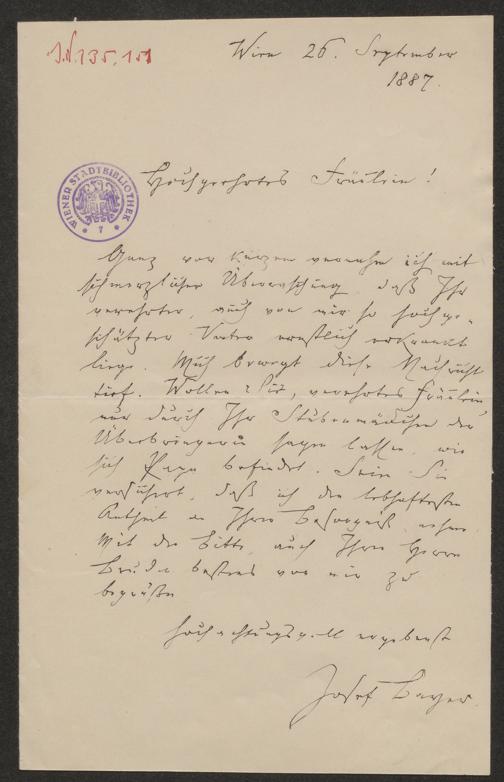 J.N. 135.151
Wien 26. September
1887.
WIENER STADTBIBLIOTHEK
Hochgeehrtes Fräulein!
Ganz vor Kurzem vernahm ich mit
schmerzlicher Überraschung, daß Ihr
verehrter, auch von mir so hochge-
schätzter Vater ernstlich erkrankt
liege. Mich bewegt diese Nachricht
tief. Wollen Sie, verehrtes Fräulein,
nur durch Ihr Stubenmädchen der
Überbringerin sagen lassen, wie
sich Papa befindet. Seien Sie
versichert, daß ich den lebhaftesten
Antheil an Ihrer Besorgniß nehme.
Mit der Bitte, auch Ihren Herrn
Bruder bestens von mir zu
begrüßen
hochachtungsvoll ergebenst
Josef Bayer.